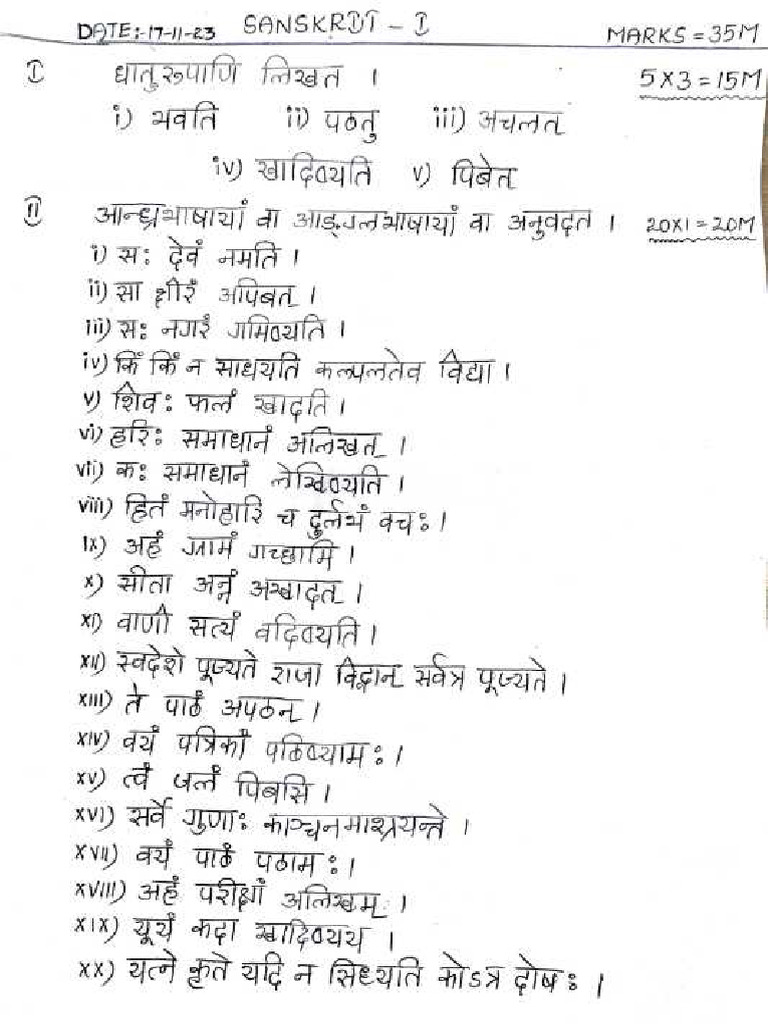 DATE:-17-11-23 SANSKRIT - I MARKS = 35M
I धातुरूपाणि लिखत । 5X3=15M
i) भवति ii) पठतु iii) अचलत्
iv) खादिष्यति v) पिबेत्
II आन्ध्रभाषायां वा आङ्ग्लभाषायां वा अनुवदत । 20X1=20M
i) सः देवं नमति ।
ii) सा क्षीरं अपिबत् ।
iii) सः नगरं गमिष्यति ।
iv) किं किं न साधयति कल्पलतेव विद्या ।
v) शिवः फलं खादति ।
vi) हरिः समाधानं अलिखत् ।
vii) कः समाधानं लेखिष्यति ।
viii) हितं मनोहारि च दुर्लभं वचः ।
ix) अहं ग्रामं गच्छामि ।
x) सीता अन्नं अखादत् ।
xi) वाणी सत्यं वदिष्यति ।
xii) स्वदेशे पूज्यते राजा विद्वान् सर्वत्र पूज्यते ।
xiii) ते पाठं अपठन् ।
xiv) वयं पत्रिकां पठिष्यामः ।
xv) त्वं जलं पिबसि ।
xvi) सर्वे गुणाः काञ्चनमाश्रयन्ते ।
xvii) वयं पाठं पठामः ।
xviii) अहं परीक्षां अलिखम् ।
xix) यूयं कदा खादिष्यथ ।
xx) यत्ने कृते यदि न सिध्यति कोऽत्र दोषः ।